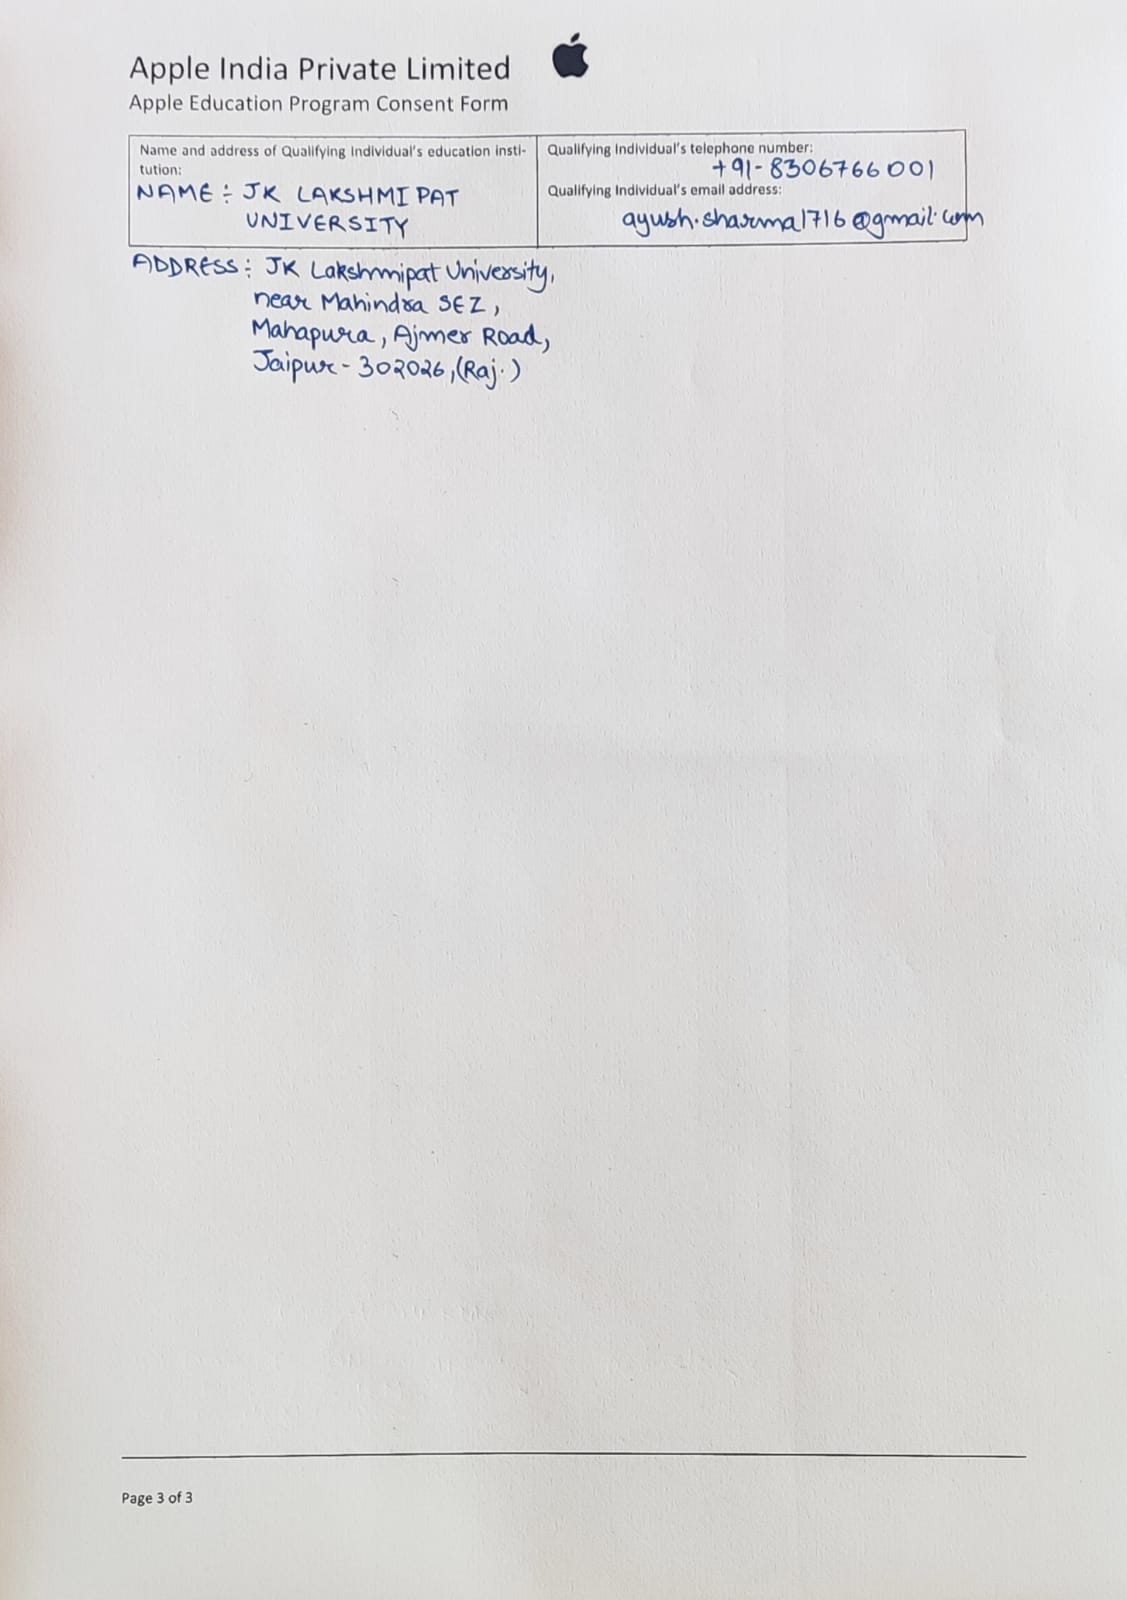 Apple India Private Limited
Apple Education Program Consent Form
Name and address of Qualifying Individual's education insti-
tution:
NAME : JK LAKSHMIPAT
UNIVERSITY
Qualifying Individual's telephone number:
+91-8306766001
Qualifying Individual's email address:
ayush.sharma1716@gmail.com
ADDRESS : JK Lakshmipat University,
near Mahindra SEZ,
Mahapura, Ajmer Road,
Jaipur - 302026, (Raj.)
Page 3 of 3